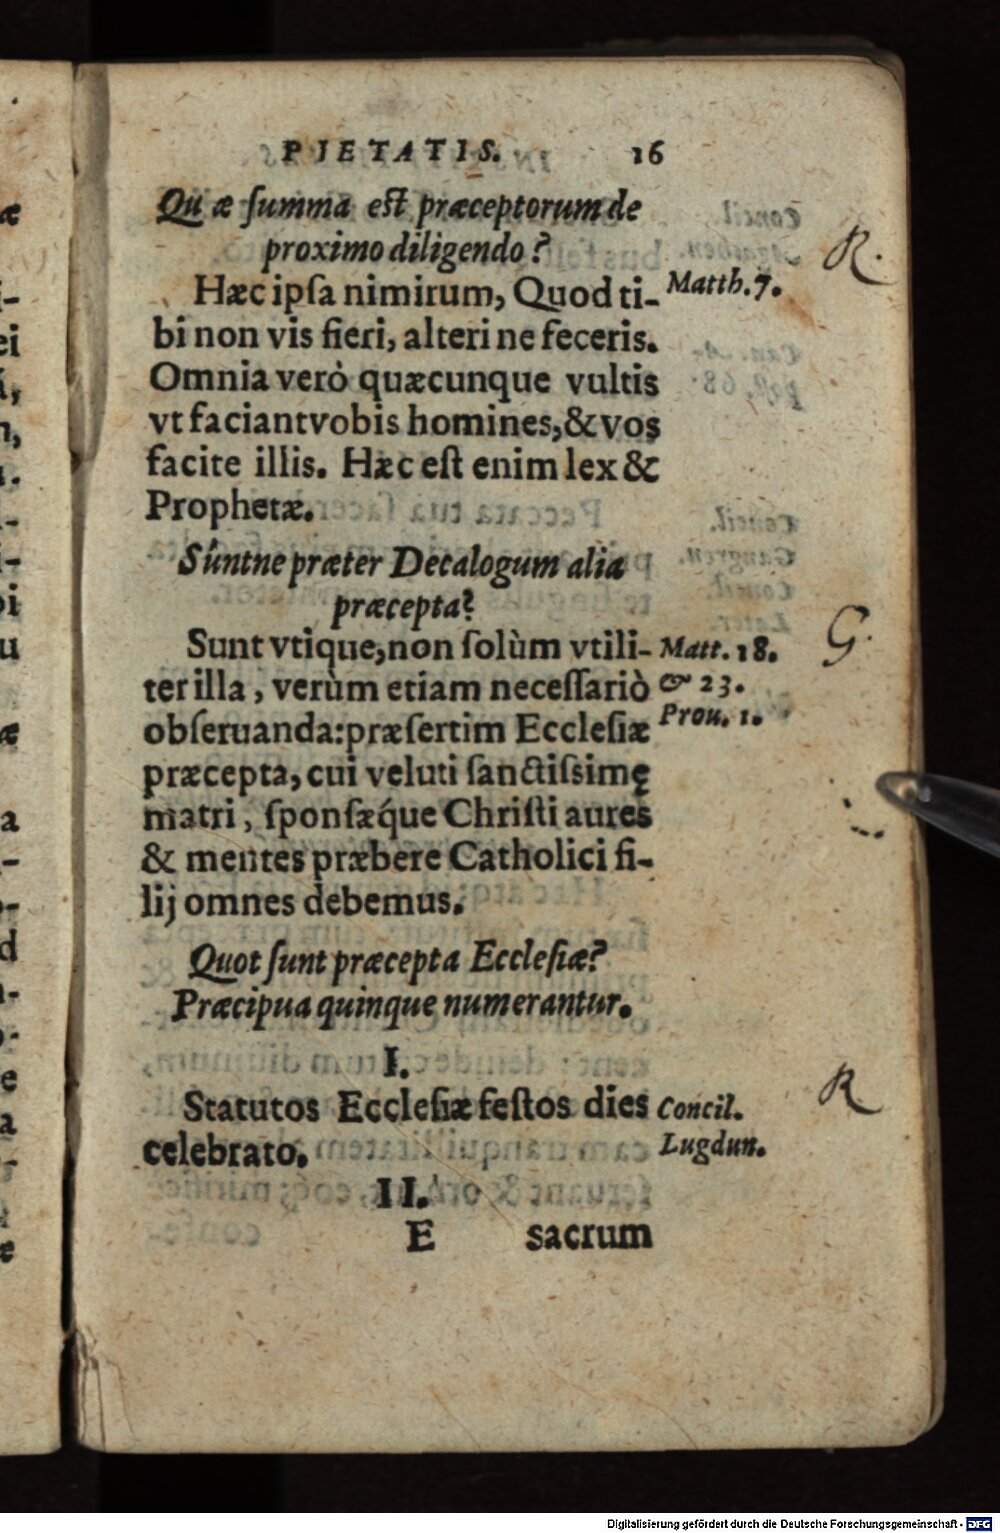 PIETATIS. 16
Quæ summa est præceptorum de
proximo diligendo?
Hæc ipſa nimirum, Quod ti- Matth. 7.
bi non vis fieri, alteri ne feceris.
Omnia verò quæcunque vultis
vt faciantvobis homines, & vos
facite illis. Hæc eſt enim lex &
Prophetæ.
R.
Súntne præter Decalogum alia
præcepta?
Sunt vtique, non ſolùm vtili- Matt. 18.
ter illa, verùm etiam neceſſariò & 23.
obſeruanda: præſertim Eccleſiæ Prou. 1.
præcepta, cui veluti ſanctiſsimę
matri, ſponſæq́ue Chriſti aures
& mentes præbere Catholici fi-
lij omnes debemus.
G.
Quot ſunt præcepta Eccleſiæ?
Præcipua quinque numerantur.
I.
Statutos Eccleſiæ feſtos dies Concil.
celebrato. Lugdun.
R
II.
E sacrum
Digitalisierung gefördert durch die Deutsche Forschungsgemeinschaft - DFG